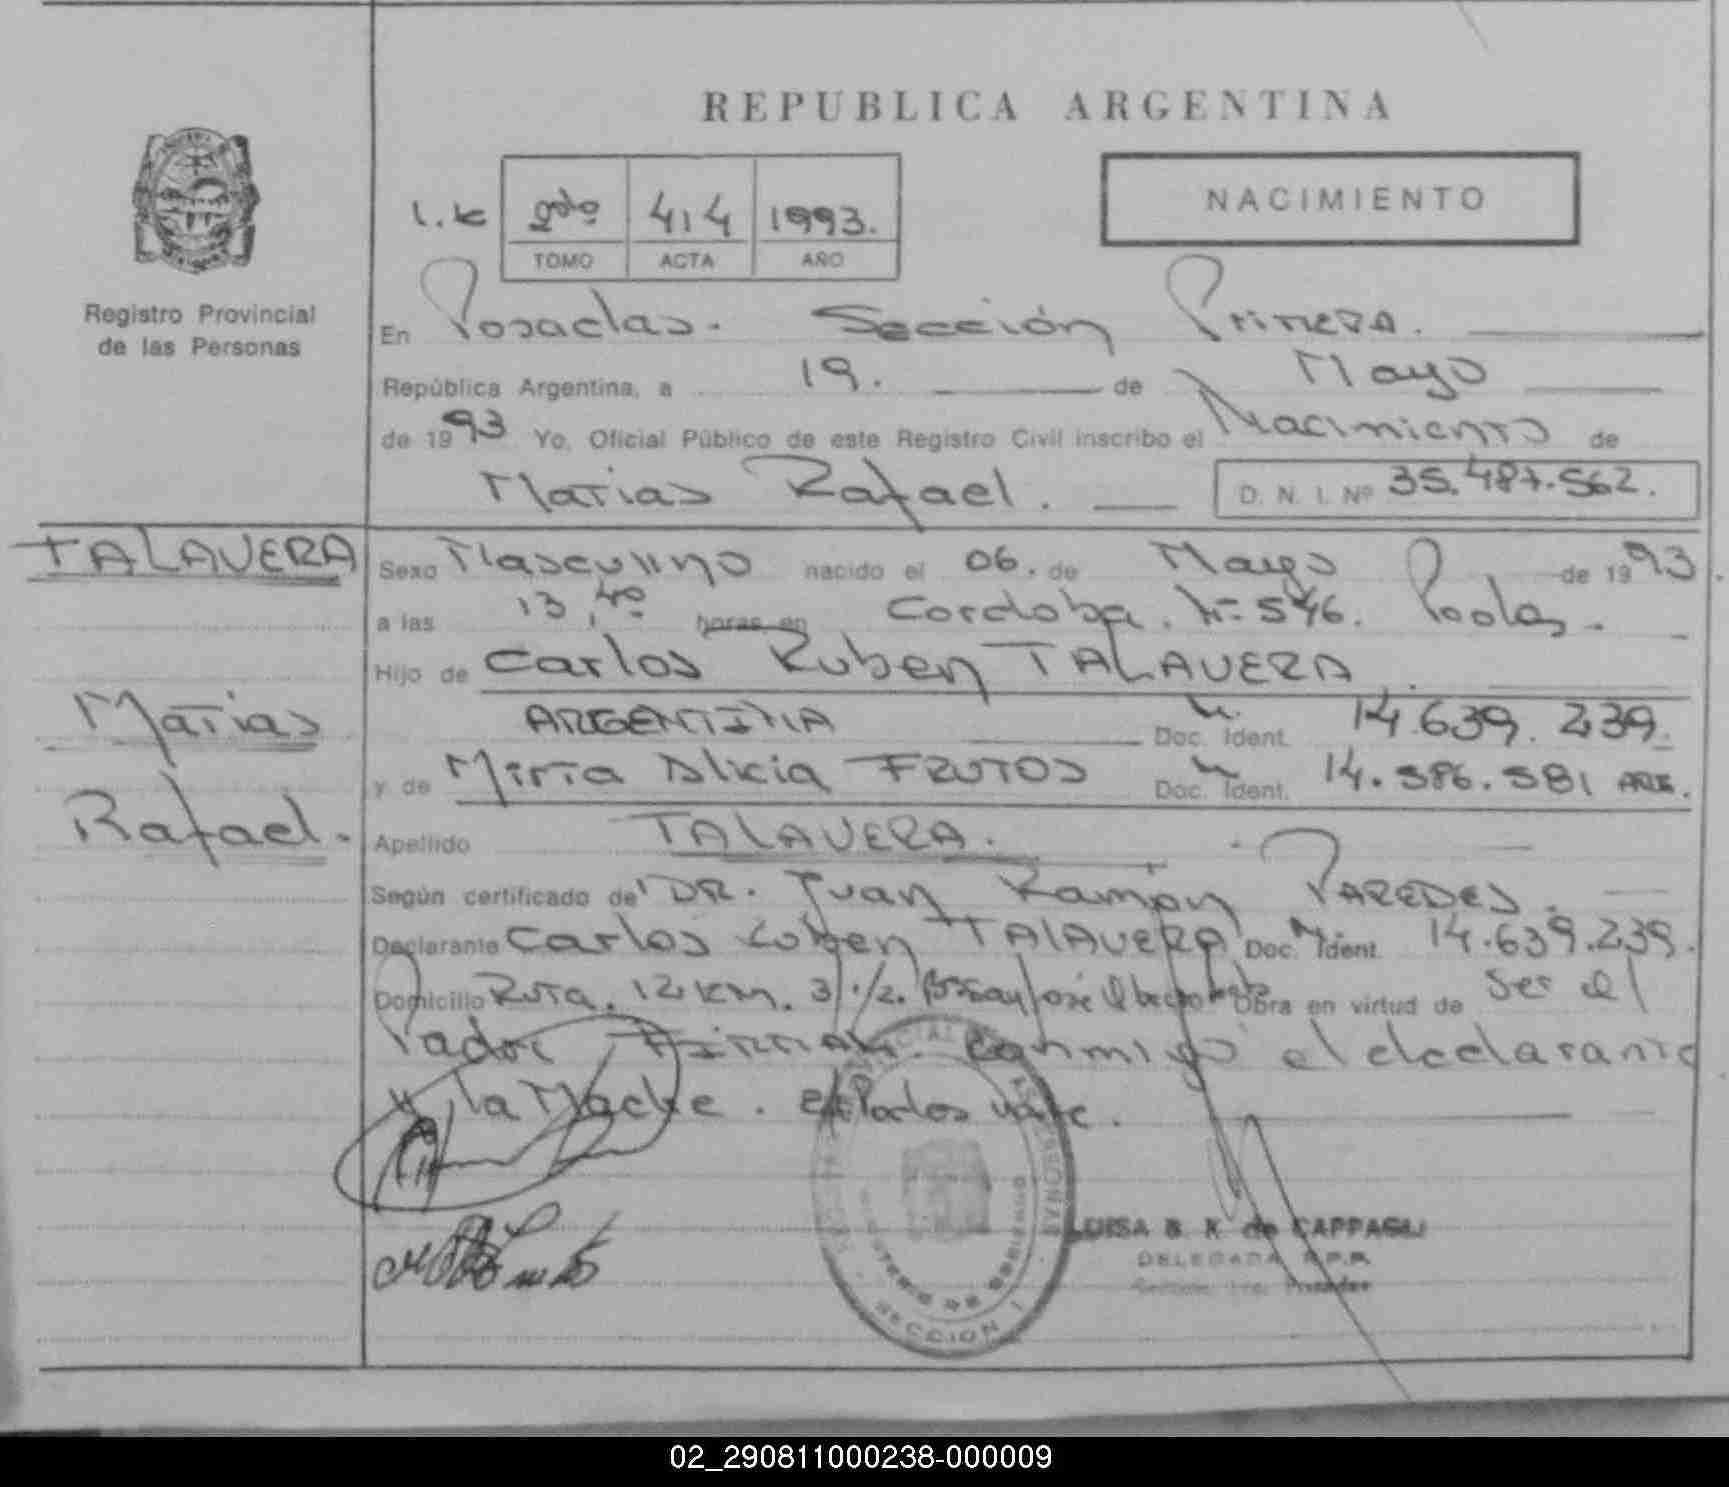 REPUBLICA ARGENTINA
NACIMIENTO
2do 414 1993.
TOMO ACTA AÑO
Registro Provincial
de las Personas
En Posadas. Sección Primera.
República Argentina, a 19. de Mayo
de 1993 Yo, Oficial Público de este Registro Civil inscribo el Nacimiento de
Matias Rafael. D. N. I. Nº 35.487.562.
TALAVERA
Matias
Rafael.
Sexo Masculino nacido el 06. de Mayo de 1993.
a las 13,40 horas en Cordoba. Nº 546. Pdas.
Hijo de Carlos Ruben TALAVERA
ARGENTINA Doc. Ident. 14.639.239.
y de Mirta Alicia FRUTOS Doc. Ident. 14.586.581 ARG.
Apellido TALAVERA.
Según certificado de DR. Juan Ramón PAREDES.
Declarante Carlos Ruben TALAVERA Doc. Ident. 14.639.239.
Domicilio Ruta. 12 KM. 3 1/2. Obra en virtud de Ser el
Padre Firman. Conmigo el declarante
y la Madre.
SECCION I
LUISA B. K. de CAPPAGLI
DELEGADA R.P.P.
02_290811000238-000009